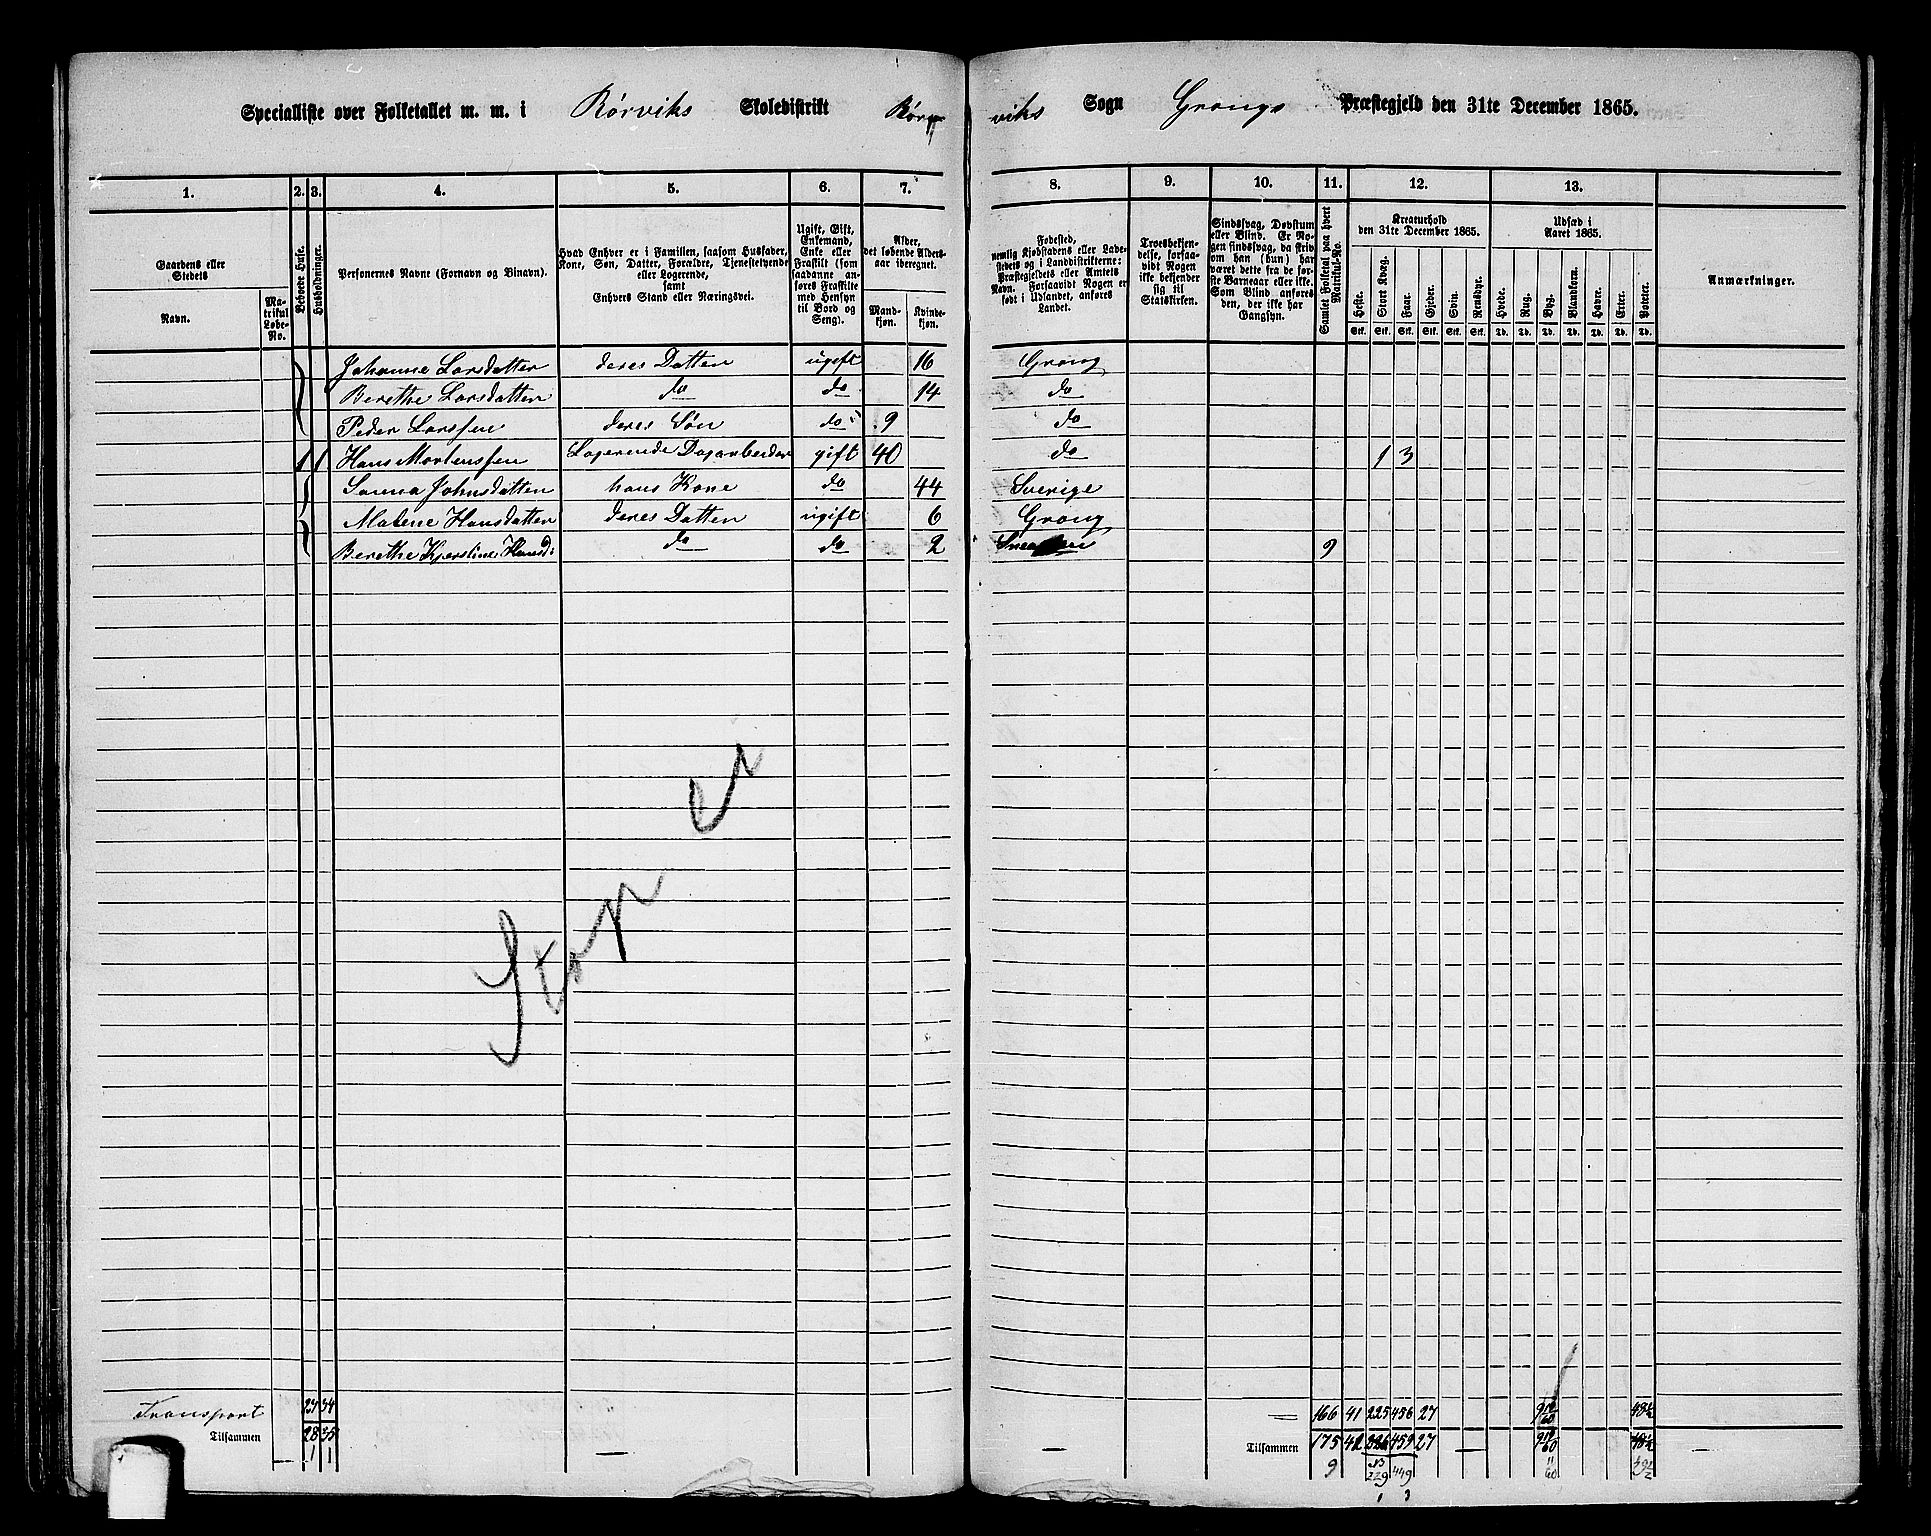 Specialliste over Folketallet m. m. i Rørviks Skoledistrikt Rørviks Sogn Grongs Præstegjeld den 31te December 1865.
1. 2. 3. 4. 5. 6. 7. 8. 9. 10. 11. 12. 13.
Gaardens eller Stedets
Navn.
Matrikul Løbe-No.
Beboede Huse.
Husholdninger.
Personernes Navne (Fornavn og Binavn).
Hvad Enhver er i Familien, saasom Husfader, Kone, Søn, Datter, Forældre, Tjenestetyende eller Logerende, samt Enhvers Stand eller Næringsvei.
Ugift, Gift, Enkemand, Enke eller Fraskilt (som saadanne anføres Fraskilte med Hensyn til Bord og Seng).
Alder, det løbende Aldersaar iberegnet.
Mandkjøn. Kvindekjøn.
Fødested, nemlig Kjøbstadens eller Ladestedets og i Landdistrikterne: Præstegjeldets eller Amtets Navn. Forsaavidt Nogen er født i Udlandet, anføres Landet.
Troesbekjendelse, forsaavidt Nogen ikke bekjender sig til Statskirken.
Sindssvag, Døvstum eller Blind. Er Nogen sindssvag, da skriv om han (hun) har været dette fra de første Barneaar eller ikke. Som Blind anføres den, der ikke har Gangsyn.
Samlet Folketal paa hvert Matrikul-No.
Kreaturhold den 31te December 1865.
Heste. Stort Kvæg. Faar. Gjeder. Svin. Rensdyr.
Stk. Stk. Stk. Stk. Stk. Stk.
Udsæd i Aaret 1865.
Hvede. Rug. Byg. Blandkorn. Havre. Erter. Poteter.
Td. Td. Td. Td. Td. Td. Td.
Anmærkninger.
Johanne Larsdatter deres Datter ugift 16 Grong
Berethe Larsdatter do do 14 do
Peder Larssen deres Søn do 9 do
1 1 Hans Mortenssen Logerende Dagarbeider gift 40 do 1 3
Sanna Johnsdatter hans Kone do 44 Sverige
Malene Hansdatter deres Datter ugift 6 Grong
Berethe Kjerstine Hansd: do do 2 9
Transport 27 34 — 166 41 225 456 27
Tilsammen 28 35 — Tilsammen 175 41 226 459 27 —
1 1 9 229 449
1 3